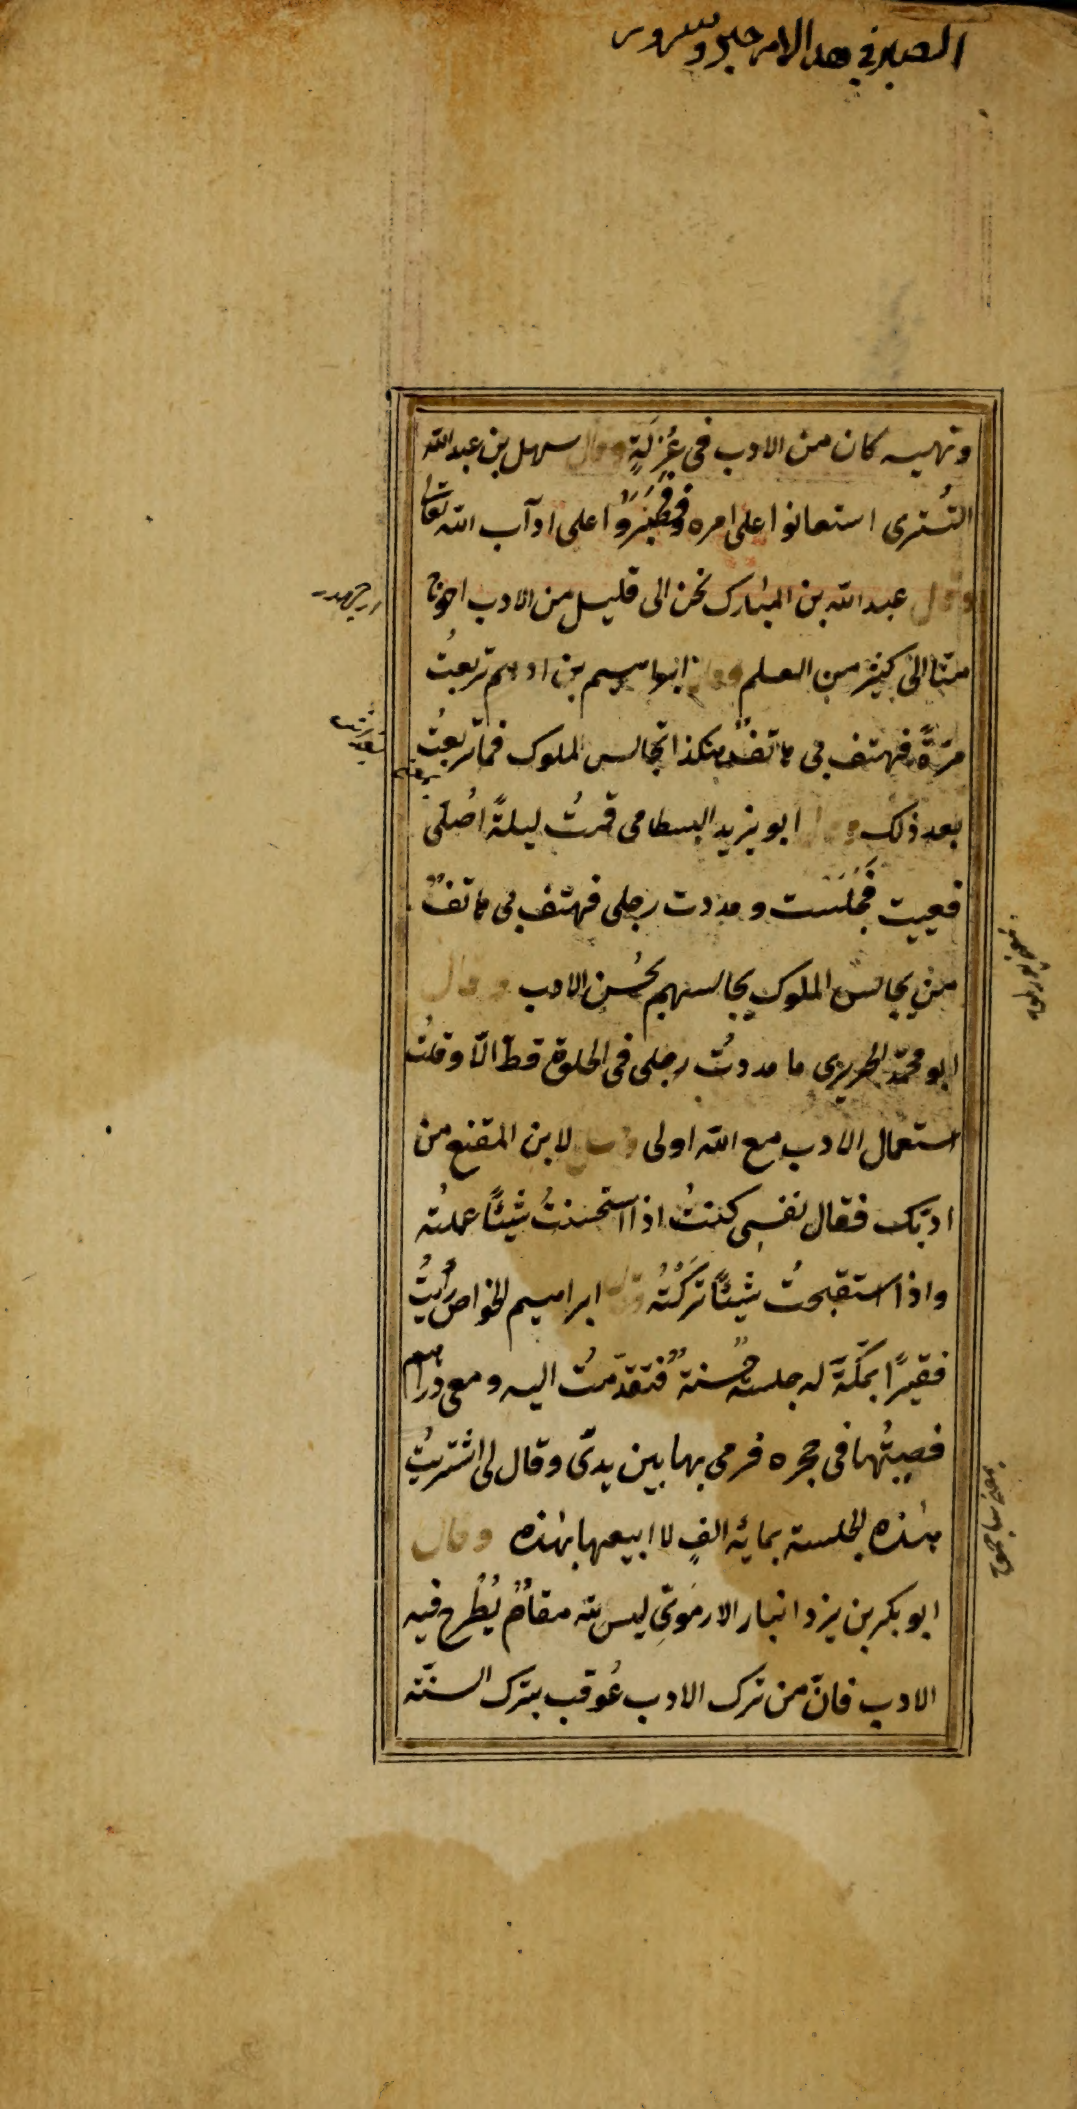 الصبر في هذا الامر خير وسرور
ونهيه كان من الادب في عُزلَةٍ وقال سهل بن عبد الله
التُسترى استعانوا على امره فصَبَرُوا على ادآب الله تعالى
وقال عبد الله بن المبارك نحن الى قليل من الادب احوج
منّا الى كثير من العلم وقال ابراهيم بن ادهم تربعتُ
مرّةً فهتف بى هاتفٌ هكذا تجالس الملوك فما تربعتُ
بعد ذلك وقال ابو يزيد البسطامى قمتُ ليلةً اُصلّى
فعييت فجَلَسَت ومددت رجلى فهتف بى هاتفٌ
من يجالس الملوك يجالسهم بحُسن الادب وقال
ابو محمّد الحريرى ما مددتُ رجلى فى الخلوة قطّ الّا وقلتُ
استعمال الادب مع الله اولى وقيل لابن المقنع من
ادبّك فقال نفسى كنتُ اذا استحسنتُ شيئًا عملتُه
واذا استقبحتُ شيئًا تَرَكْتُه وقال ابراهيم الخواص رأيتُ
فقيرًا بمكّةَ له جلسة حسنةٌ فتقدّمتُ اليه ومعى دراهم
فصببتُها فى حجره فرمى بها بين يدىّ وقال لى اشتريتُ
هذه الجلسة بمائة الفٍ لا ابيعها بهذه وقال
ابو بكر بن يزدانيار الارمَوِىّ ليس لله مقامٌ يُطْرح فيه
الادب فانّ من ترك الادب عُوقب بترك السنّة